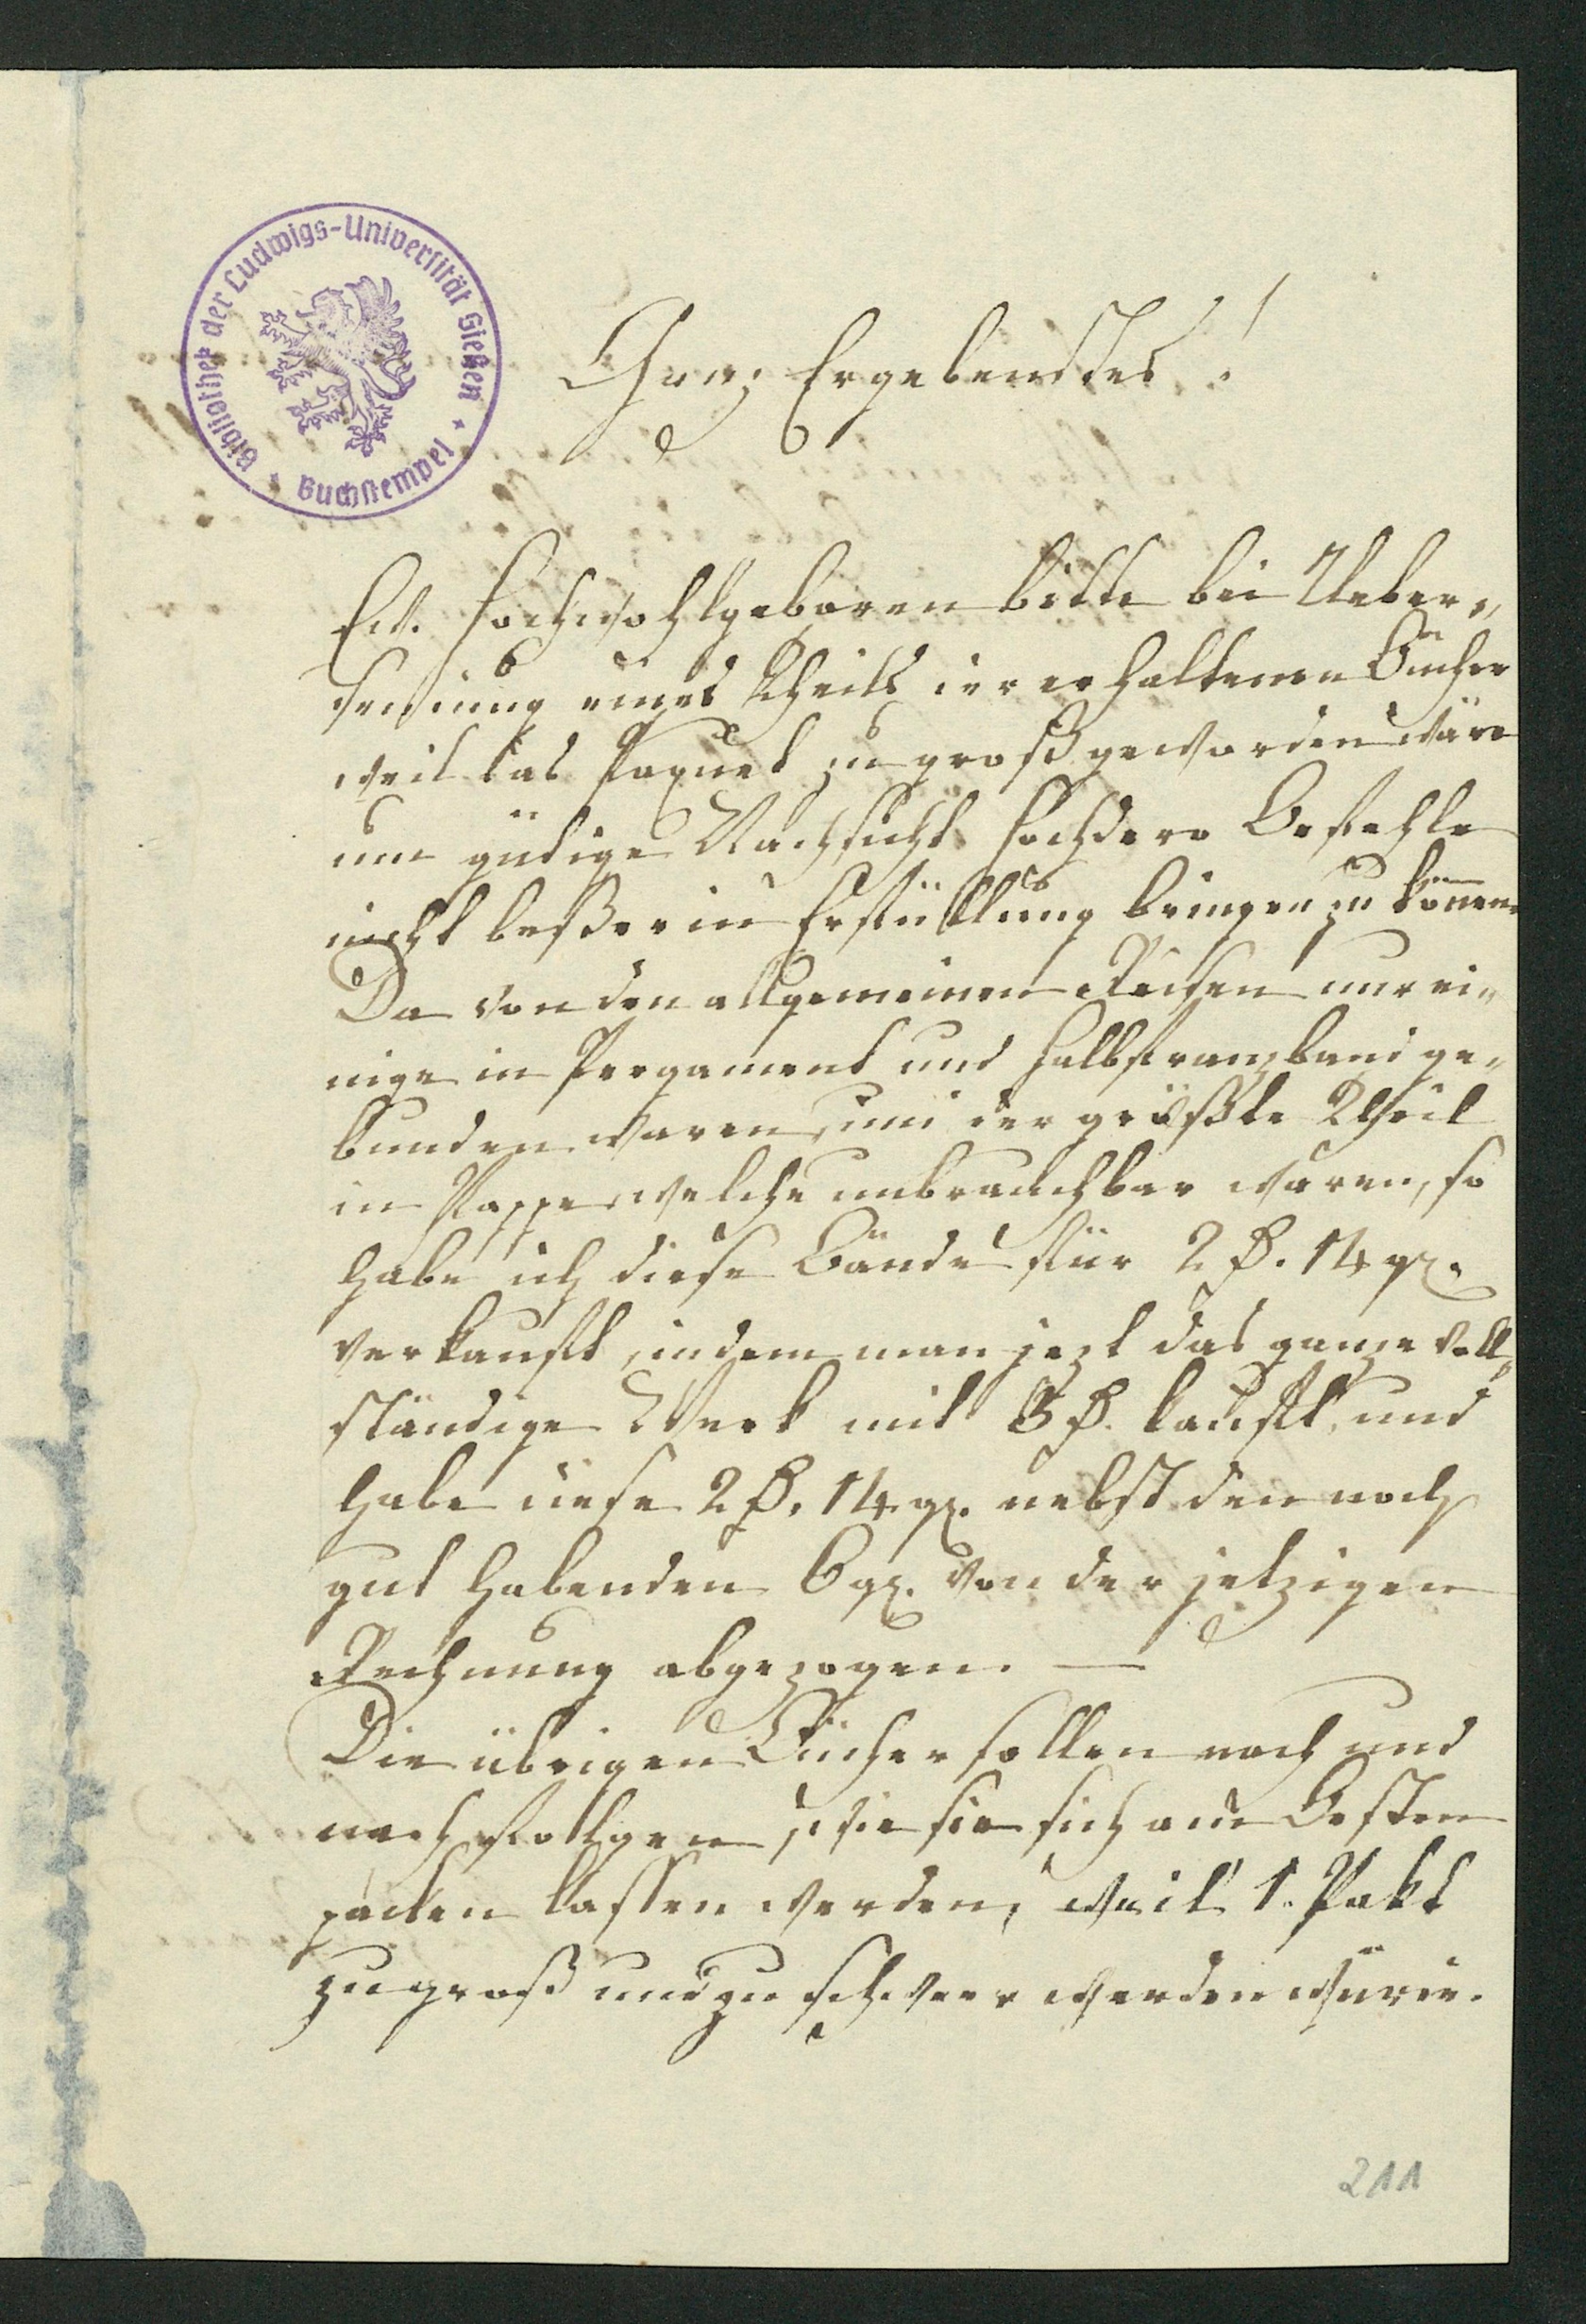 Bibliothek der Ludwigs-Universität Gießen
Buchstempel
Ganz Ergebenstes!
Ew. Hochwohlgeboren bitte bei Ueber„
sendung eines Theils der erhaltenen Bücher
weil das Paquet zu groß geworden wäre
um gütige Nachsicht Hochdero Befehle
nicht beßer in Erfüllung bringen zu können
Da von den allgemeinen Reisen nur ei„
nige in Pergament und Halbfranzband ge„
bunden waren, und der größte Theil
in Pappe, welche unbrauchbar waren, so
habe ich diese Bände für 2 fl. 14 gr.
verkauft, indem man jezt das ganze voll„
ständige Werk mit 3 fl. kauft, und
habe diese 2 fl. 14 gr. nebst den noch
gut habenden 6 gr. von der jetzigen
Rechnung abgezogen. —
Die übrigen Bücher sollen nach und
nach folgen, wie sie sich am Besten
packen lassen werden, weil 1. Pakt
zu groß und zu schwer werden würde.
211